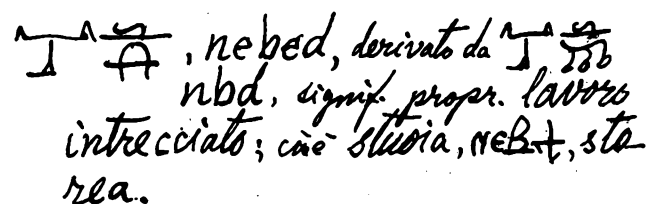 , nebed, derivato da
nbd, signif. propr. lavoro
intrecciato; cioè stuoia, ⲛⲉⲃϯ, sto
rea.